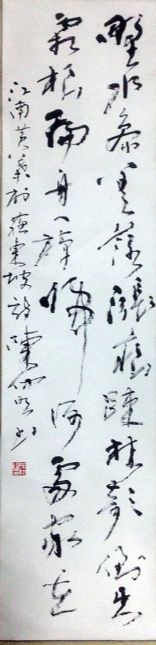 野水參差落漲痕疎林欹倒出
霜根扁舟一棹歸何處家在
江南黃葉村蘇東坡詩陳